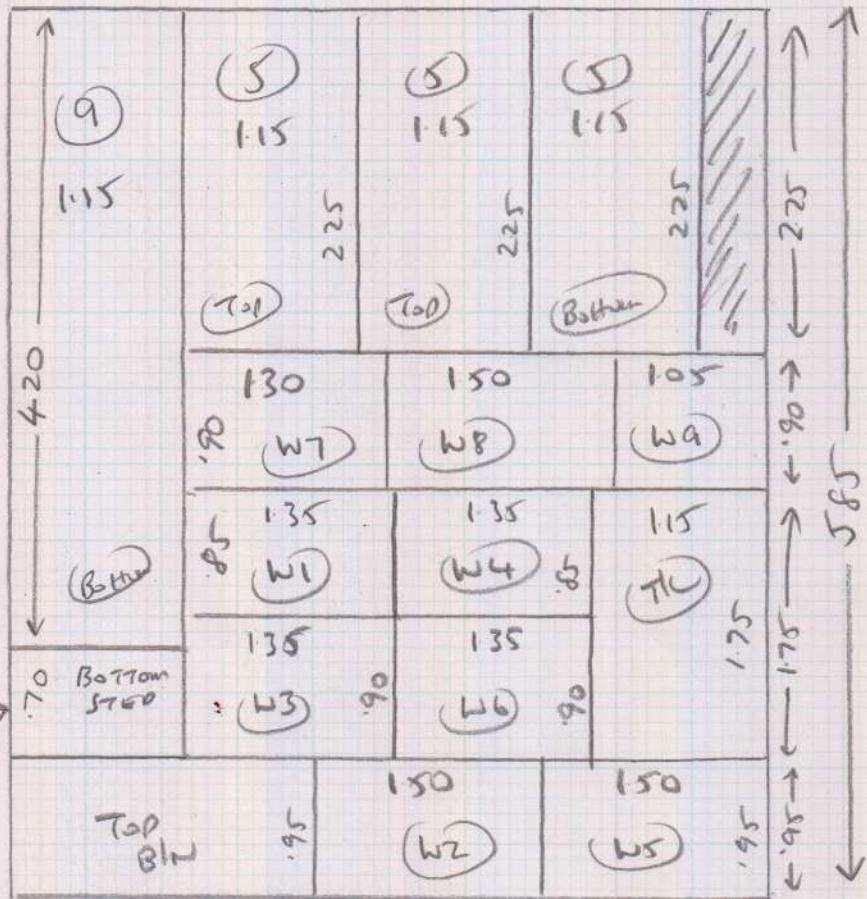 9
1.15
4.20
Bottom
5
1.15
2.25
Top
5
1.15
2.25
Top
5
1.15
2.25
Bottom
2.25
1.30
.90
W7
1.50
W8
1.05
W9
.90
5.85
1.35
.85
W1
1.35
.85
W4
1.15
T/L
1.75
1.75
.70
BOTTOM
STEP
1.35
.90
W3
1.35
.90
W6
Top
.95
1.50
W2
1.50
W5
.95
.95